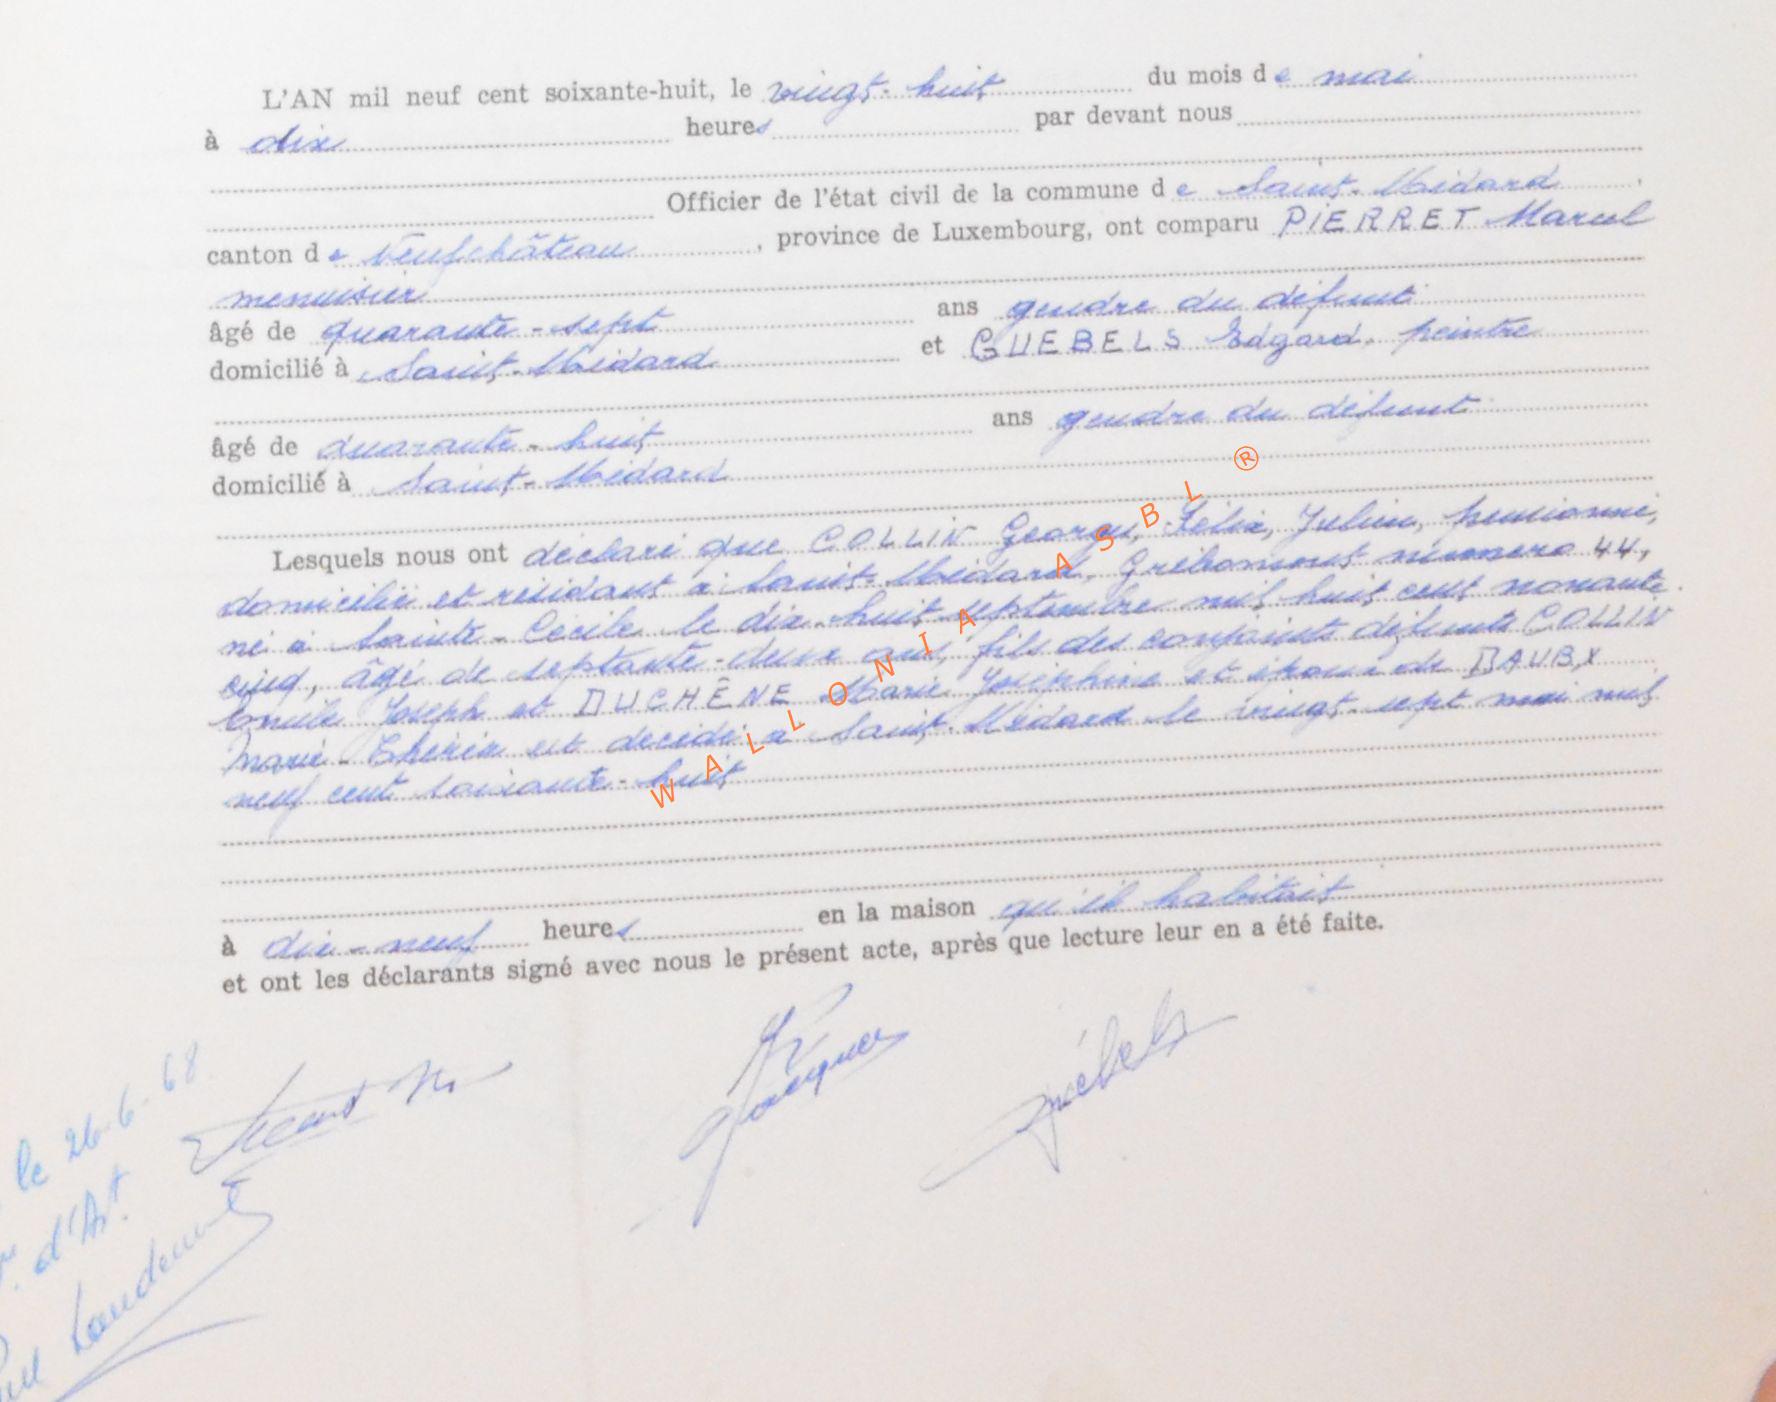 L'AN mil neuf cent soixante-huit, le vingt-huit du mois de mai
à dix heures par devant nous
Officier de l'état civil de la commune de Saint-Médard,
canton de Neufchâteau, province de Luxembourg, ont comparu PIERRET Marcel
menuisier
âgé de quarante-sept ans gendre du défunt
domicilié à Saint-Médard et GUEBELS Edgard, peintre
âgé de quarante-huit ans gendre du défunt
domicilié à Saint-Médard
Lesquels nous ont déclaré que COLLIN Georges, Félix, Julien, pensionné,
domicilié et résidant à Saint-Médard, Gribomont numéro 44,
né à Sainte-Cécile le dix-huit septembre mil huit cent nonante
cinq, âgé de septante-deux ans, fils des conjoints défunts COLLIN
Emile Joseph et DUCHÊNE Marie Joséphine et époux de DAUBY
Marie-Thérèse est décédé à Saint-Médard le vingt-sept mai mil
neuf cent soixante-huit
à dix-neuf heures en la maison qu'il habitait
et ont les déclarants signé avec nous le présent acte, après que lecture leur en a été faite.
WALLONIA ASBL ®
le 26-6-68
d'Art.